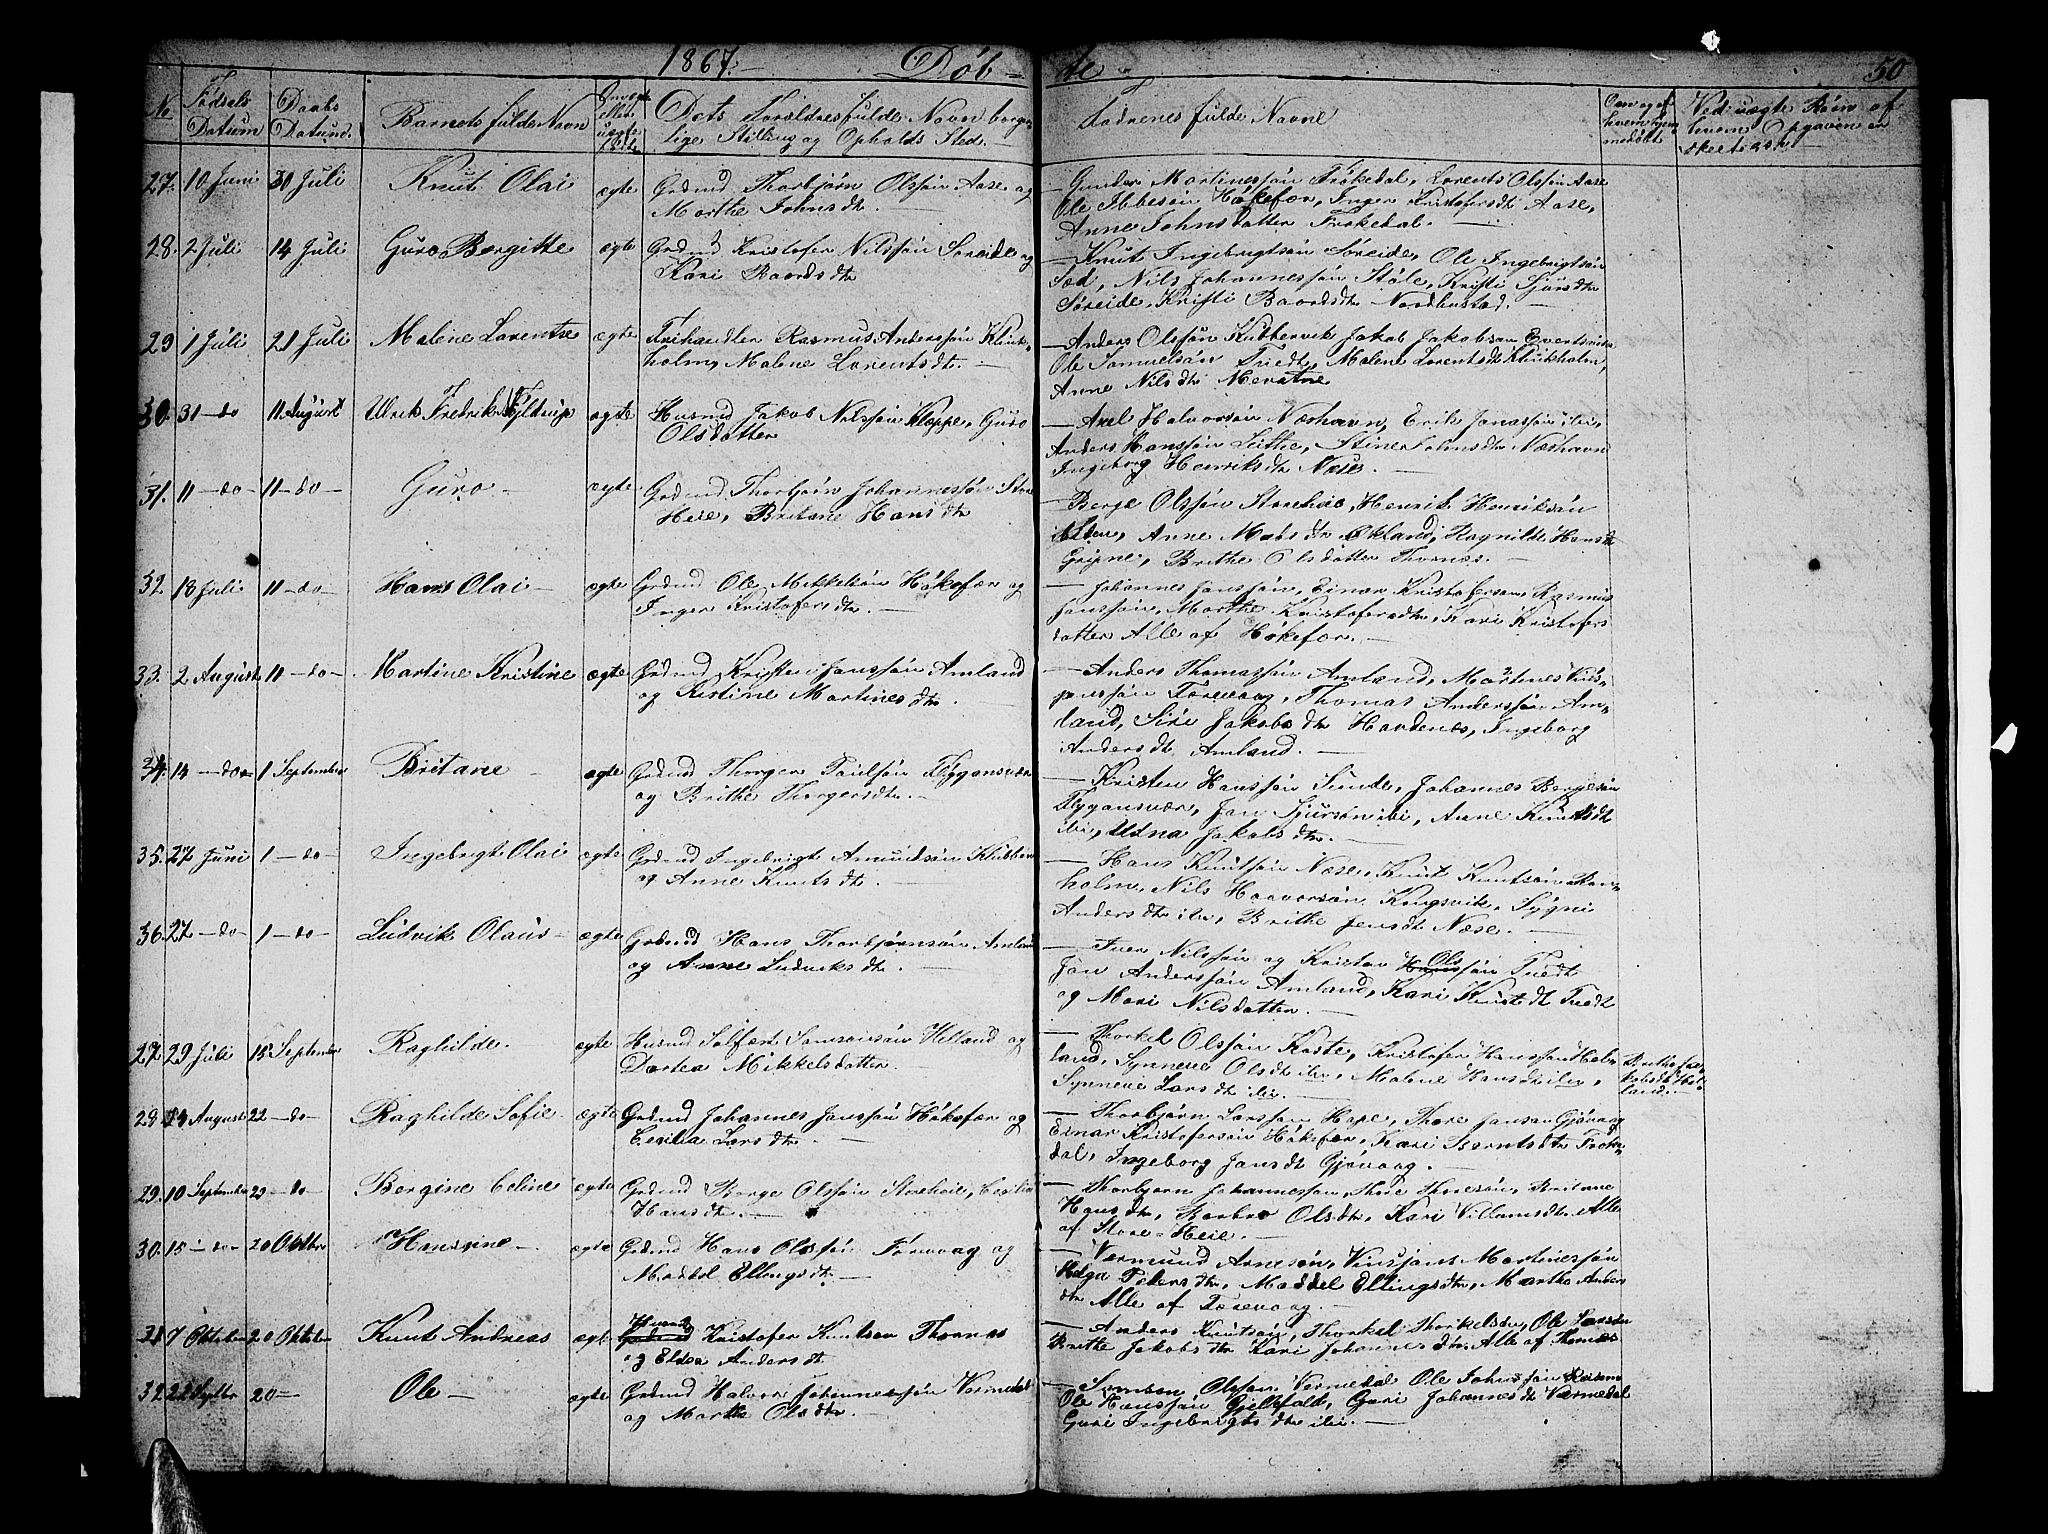 1867. Døb-
de 50
No Fødsels Datum Daabs Datum Barnets fulde Navn Dets Forældres fulde Navn borger-
lige Stilling og Opholds Sted.
Fadrenes fulde Navne
Ved uægte Børn af
hvem Opgaven er
skeet
27. 10 Juni 30 Juli Knut Olai ægte Grdmd Thorbjørn Olssøn Aase og
Marthe Johnsdtr.
Gunder Martinessøn Frøkedal, Lorents Olssøn Aase
Ole Ibbesøn Høkefær, Inger Kristofersdtr Aase,
Anne Johnsdatter Frøkedal.
28. 2 Juli 14 Juli Guro Bergitte ægte Grdmd Kristofer Nilssøn Søreide og
Kari Baardsdtr
Knut Ingebrigtsøn Søreide, Ole Ingebrigtsøn
Sæd, Nils Johannessøn Støle, Kristi Sjursdtr
Søreide, Kristi Baardsdtr Nordhustad.
29 1 Juli 21 Juli Malene Lorentse ægte Frihandler Rasmus Anderssøn Kluk-
holm, Malene Lorentsdtr.
Anders Olssøn Kubbervik Jakob Jakobsøn Evertsvik
Ole Samuelsøn Tuedt, Malene Lorentsdtr Klukholm,
Anne Nilsdtr Mevatne
30. 31 - do 11 August Ulrik Fredrik ægte Husmd Jakob Nilssøn Kloppe, Guro
Olsdatter
Axel Halvorsøn Næshavn, Erik Janessøn ibi,
Anders Hanssøn Leitte, Stine Holmsdtr Næshavn
Ingeborg Henriksdtr Næse.
31. 11 - do 11 - do - Guro - ægte Grdmd Thorbjørn Johannessøn Store
Heie, Britane Hansdtr
Berge Olssøn Storeheie, Henrik Henriksøn
Alden, Anne Madsdtr Økland, Ragnilde Hansdtr
Gripne, Brithe Olsdatter Thornæs.
32. 18 Juli 11 - do - Hans Olai - ægte Grdmd Ole Mikkelsøn Høkefær og
Inger Kristofersdtr.
Johannes Janssøn, Einar Kristofersøn, Rasmus
Janssøn, Marthe Kristofersdtr, Kari Kristofers
datter Alle af Høkefær.
33. 2 August 11 - do - Martine Kristine ægte Grdmd Kristen Janssøn Amland
og Kristine Martinesdtr.
Anders Thomassøn Amland, Martines Vins-
janssøn Torevaag, Thomas Anderssøn Am-
land, Siri Jakobsdtr Hardenæs, Ingeborg
Andersdtr Amland.
34. 14 - do - 1 September Britane - ægte Grdmd Thorger Poulsøn Flygansvær
og Brithe Thorgersdtr.
Kristen Hanssøn Sunde, Johannes Bergesøn
Flygansvær, Jan Sjursøn ibi, Anne Knutsdtr
ibi, Edna Jakobsdtr.
35. 27 Juni 1 - do Ingebrigt Olai ægte Grdmd Ingebrigt Amundsøn Klubben
og Anne Knutsdtr.
Hans Knutsøn Næse, Knut Knutsøn
holm, Nils Haavorsøn Kongsvik, Sygni
Andersdtr ibi, Brithe Jensdtr Næse.
36. 27 - do 1 - do - Ludvik Olaus - ægte Grdmd Hans Thorbjørnsøn Amland
og Anne Ludviksdtr.
Iver Nilssøn og Kristen Olssøn Tuedt
Jan Anderssøn Amland, Kari Knutsdtr Tuedt
og Mari Nilsdatter.
27. 29 Juli 15 September Raghilde. ægte Husmd Salfæst Samsonsøn Helland og
Dortea Mikkelsdatter.
Thorkel Olssøn Koste, Kristofer Hanssøn Hel-
land, Synneve Olsdtr ibi, Malene Hansdtr ibi,
Synneve Larsdtr ibi.
Brithe Ja-
kobsdtr Hel-
land.
28 August 22 - do - Raghilde Sofie. ægte Grdmd Johannes Janssøn Høkefær og
Cecilia Larsdtr.
Thorbjørn Larssøn Hope, Thore Jansøn Gjøvaag
Einar Kristofersøn Høkefær, Kari Berntsdtr Froke-
dal, Ingeborg Jansdtr Gjøvaag.
29. 10 September 29 - do - Bergine Celine ægte Grdmd Berge Olssøn Storeheie, Cecilia
Hansdtr.
Thorbjørn Johannessøn, Thore Thoresøn, Britane
Hansdtr, Barbro Olsdtr, Kari Villumsdtr Alle
af Store-Heie.
30. 15 - do - 20 Oktbr Hansine - ægte Grdmd Hans Olssøn Torevaag og
Maddel Ellingsdtr
Vermund Arnesøn, Vinsjans Martinessøn
Helga Pedersdtr, Maddel Ellingsdtr, Marthe Anders
dtr Alle af Torevaag.
31 7 Oktober 20 Oktober Knut Andreas ægte Husmd Kristofer Knutsøn Thornæs
og Eldea Andersdtr
Anders Knutsøn, Thorkel Thorkelsøn, Ole Larssøn
Brithe Jakobsdtr Kari Johannesdtr. Alle af Thornæs
32. 22 Septbr 20 - Ole - ægte Grdmd Halvor Johannessøn Vermedal
og Marthe Olsdtr.
Samson Olssøn Vermedal Ole Johnssøn
Ole Hanssøn Gjelsfald, Guri Johannesdtr Vermedal
Guri Ingebrigtsdtr ibi.